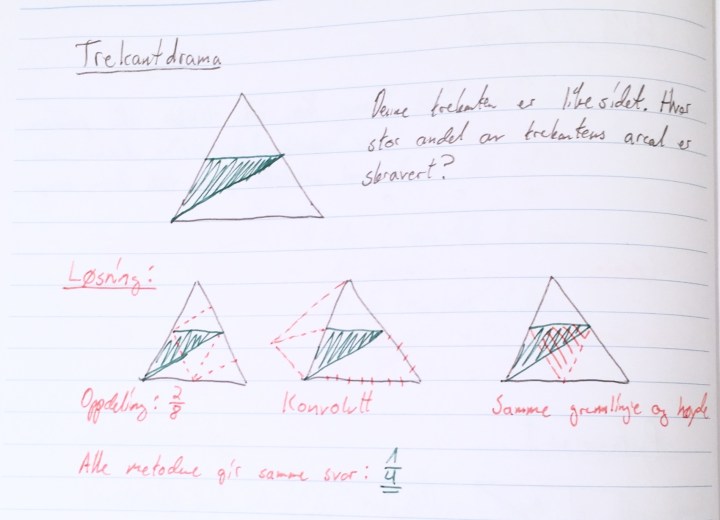 Trekantdrama
Denne trekanten er likesidet. Hvor
stor andel av trekantens areal er
skravert?
Løsning:
Oppdeling: 2/8
Konvolutt
Samme grunnlinje og høyde
Alle metodene gir samme svar: 1/4